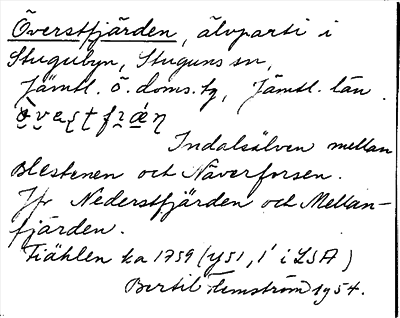 Överstfjärden, älvparti i
Stugubyn, Stuguns sn,
Jämtl. ö. doms.tg, Jämtl. län.
Indalsälven mellan
Blestenen och Näverforsen.
Jfr Nederstfjärden och Mellan-
fjärden.
Fiählen ka 1759 (y51, 1' i LSA)
Bertil Flemström 1954.